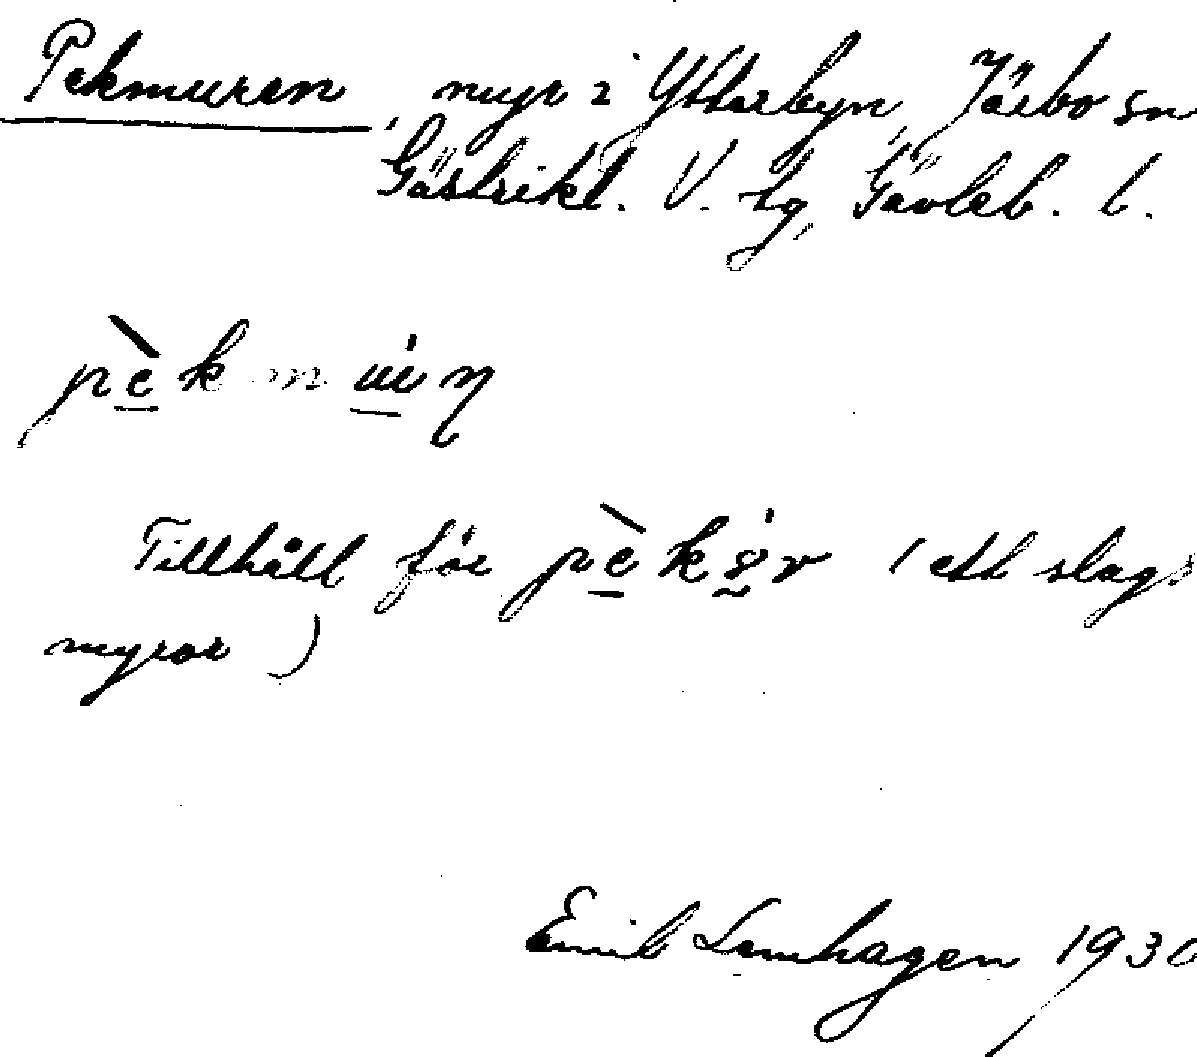 Pekmuren, myr i Ytterbyn, Järbo sn
Gästrikl. V. tg, Gävleb. l.
pèk m
Tillhåll för pèk (ett slags
myror)
Emil Lomhagen 1930